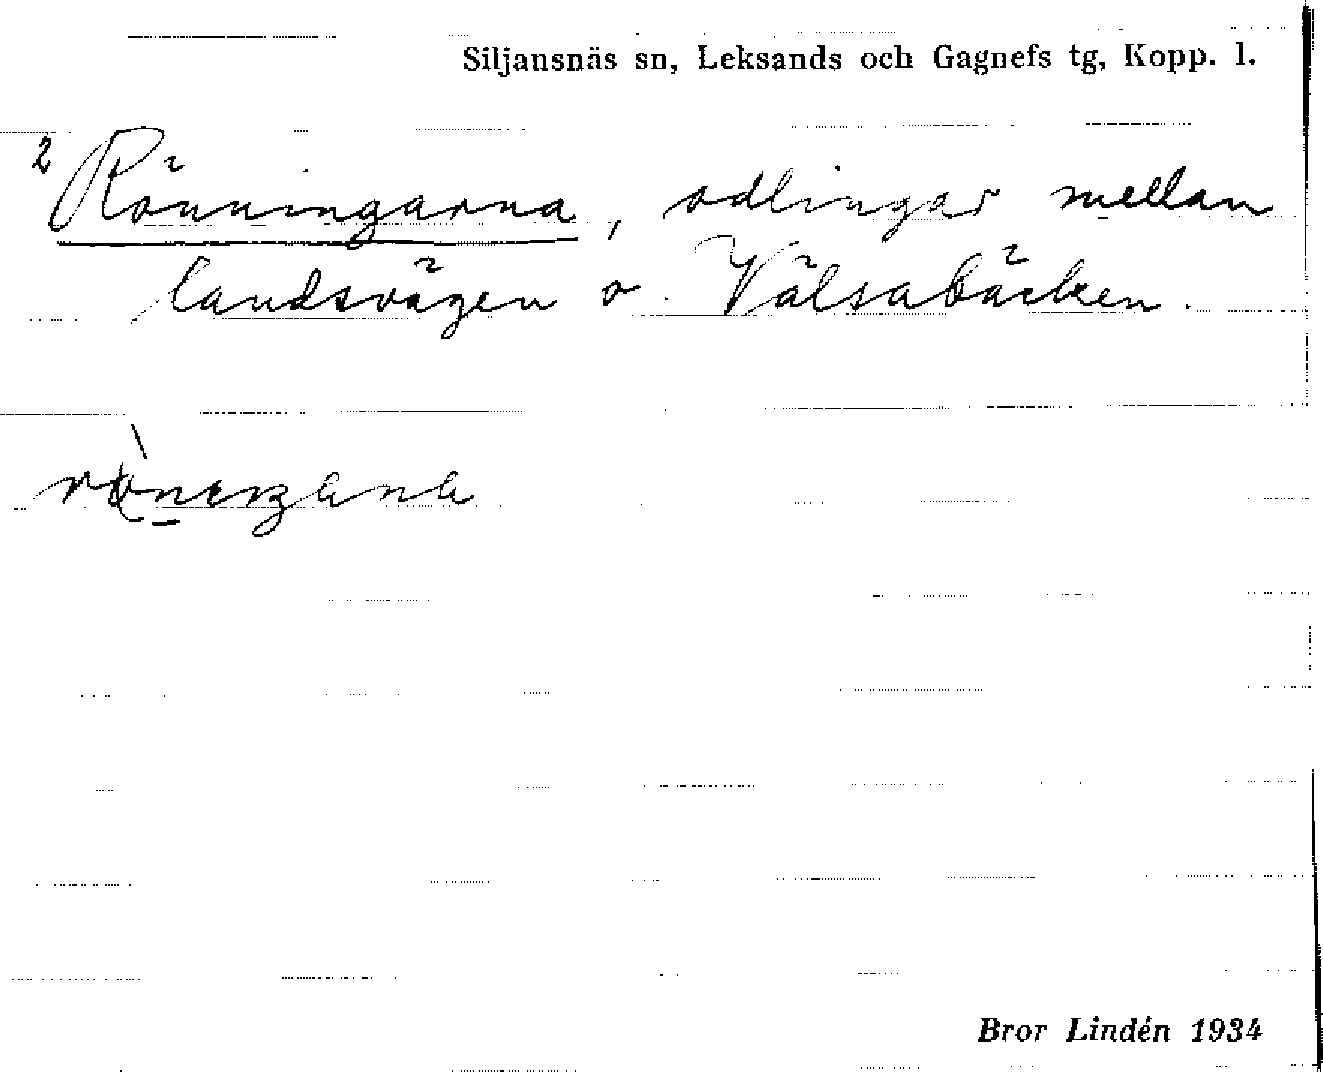 Siljansnäs sn, Leksands och Gagnefs tg, Kopp. l.
2 Rönningarna, odlingar mellan
landsvägen o. Välsabäcken.
Bror Lindén 1934